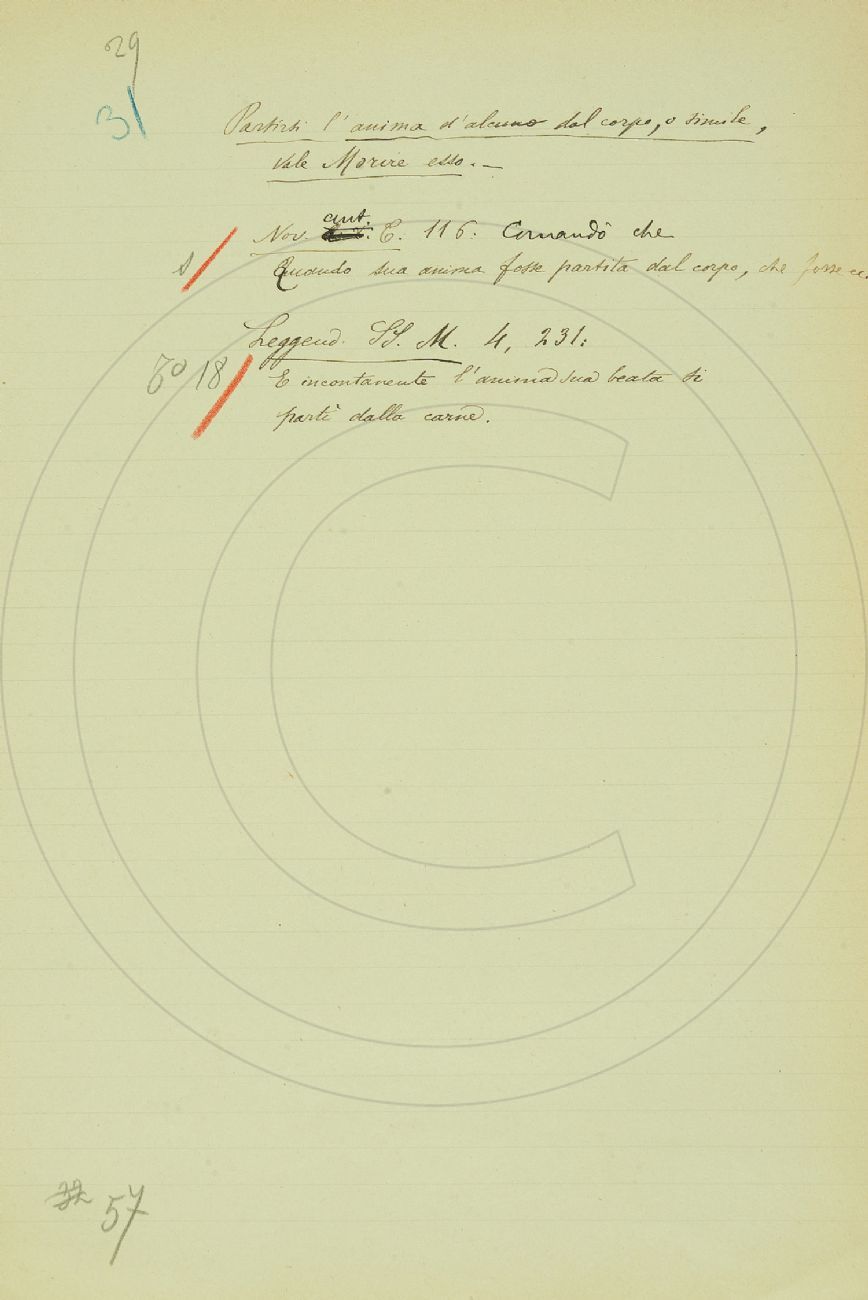 29
31
Partirsi l'anima d'alcuno dal corpo, o simile,
vale Morire esso. —
ant.
Nov. T. 116: Comandò che
Quando sua anima fosse partita dal corpo, che fosse
Leggend. SS. M. 4, 231:
18
E incontanente l'anima sua beata si
partì dalla carne.
57